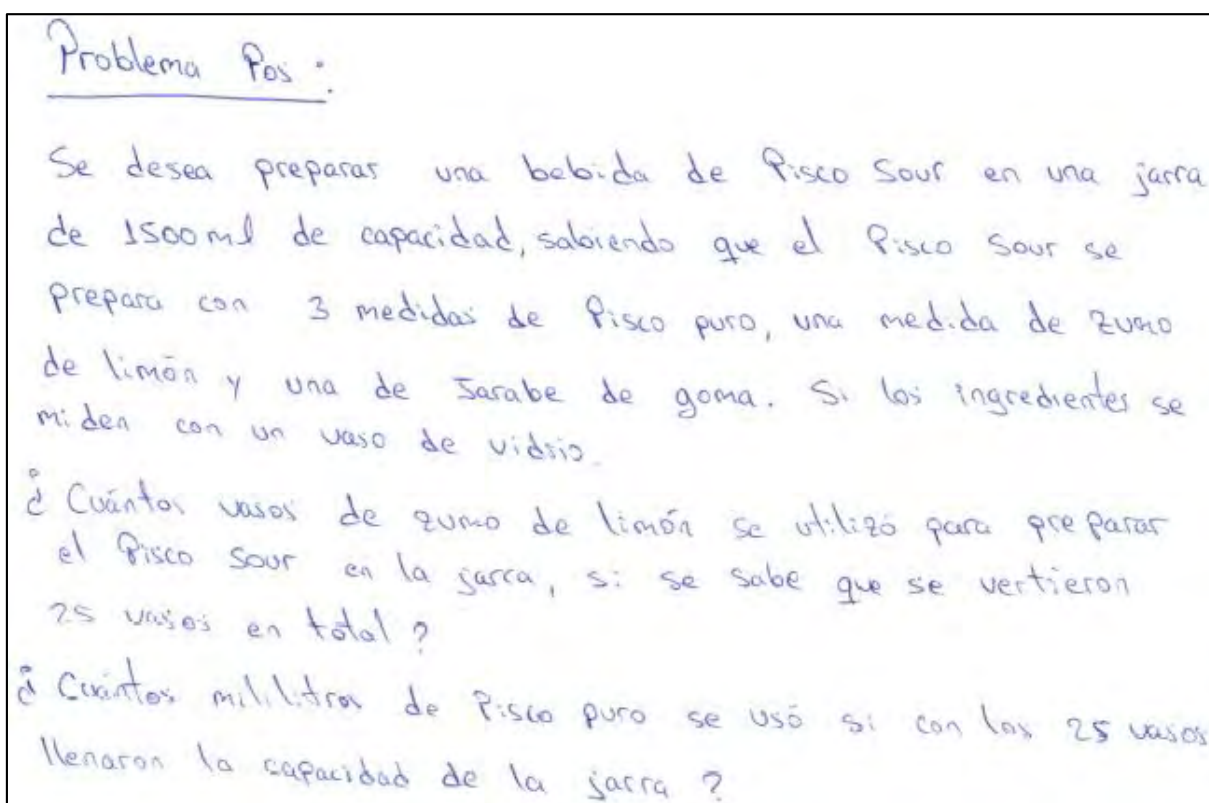 Problema Pos :
Se desea preparar una bebida de Pisco Sour en una jarra
de 1500 ml de capacidad, sabiendo que el Pisco Sour se
prepara con 3 medidas de Pisco puro, una medida de zumo
de limón y una de Jarabe de goma. Si los ingredientes se
miden con un vaso de vidrio.
¿Cuántos vasos de zumo de limón se utilizó para preparar
el Pisco Sour en la jarra, si se sabe que se vertieron
25 vasos en total?
¿Cuántos mililitros de Pisco puro se usó si con los 25 vasos
llenaron la capacidad de la jarra?